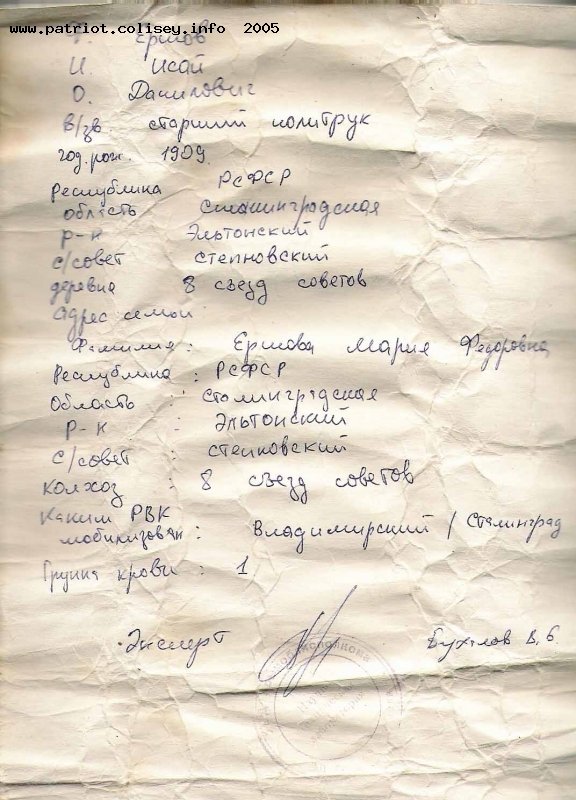 www.patriot.colisey.info 2005
Ф. Ершов
И. Исай
О. Данилович
в/зв старший политрук
год.рож. 1909.
Республика РСФСР
область Сталинградская
р-н Эльтонский
с/совет степновский
деревна 8 съезд советов
адрес семьи
Фамилия: Ершова Мария Федоровна
Республика: РСФСР
Область : Сталинградская
р-н : Эльтонский
с/совет : степновский
колхоз : 8 съезд советов
Каким РВК
мобилизован: Владимирский / Сталинград
Группа крови : 1
Эксперт В.Б.